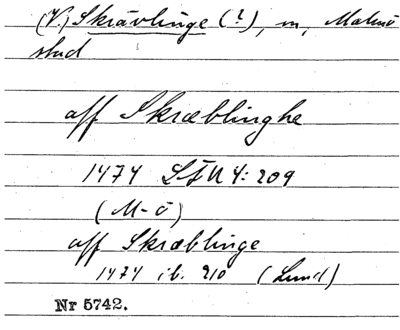 (V.) Skrävlinge (?), m, Malmö
stad
aff Skræblinghe
1474 LÄU 4: 209
(M-ö)
aff Skræblinge
1474 ib. 210 (Lund)
Nr 5742.